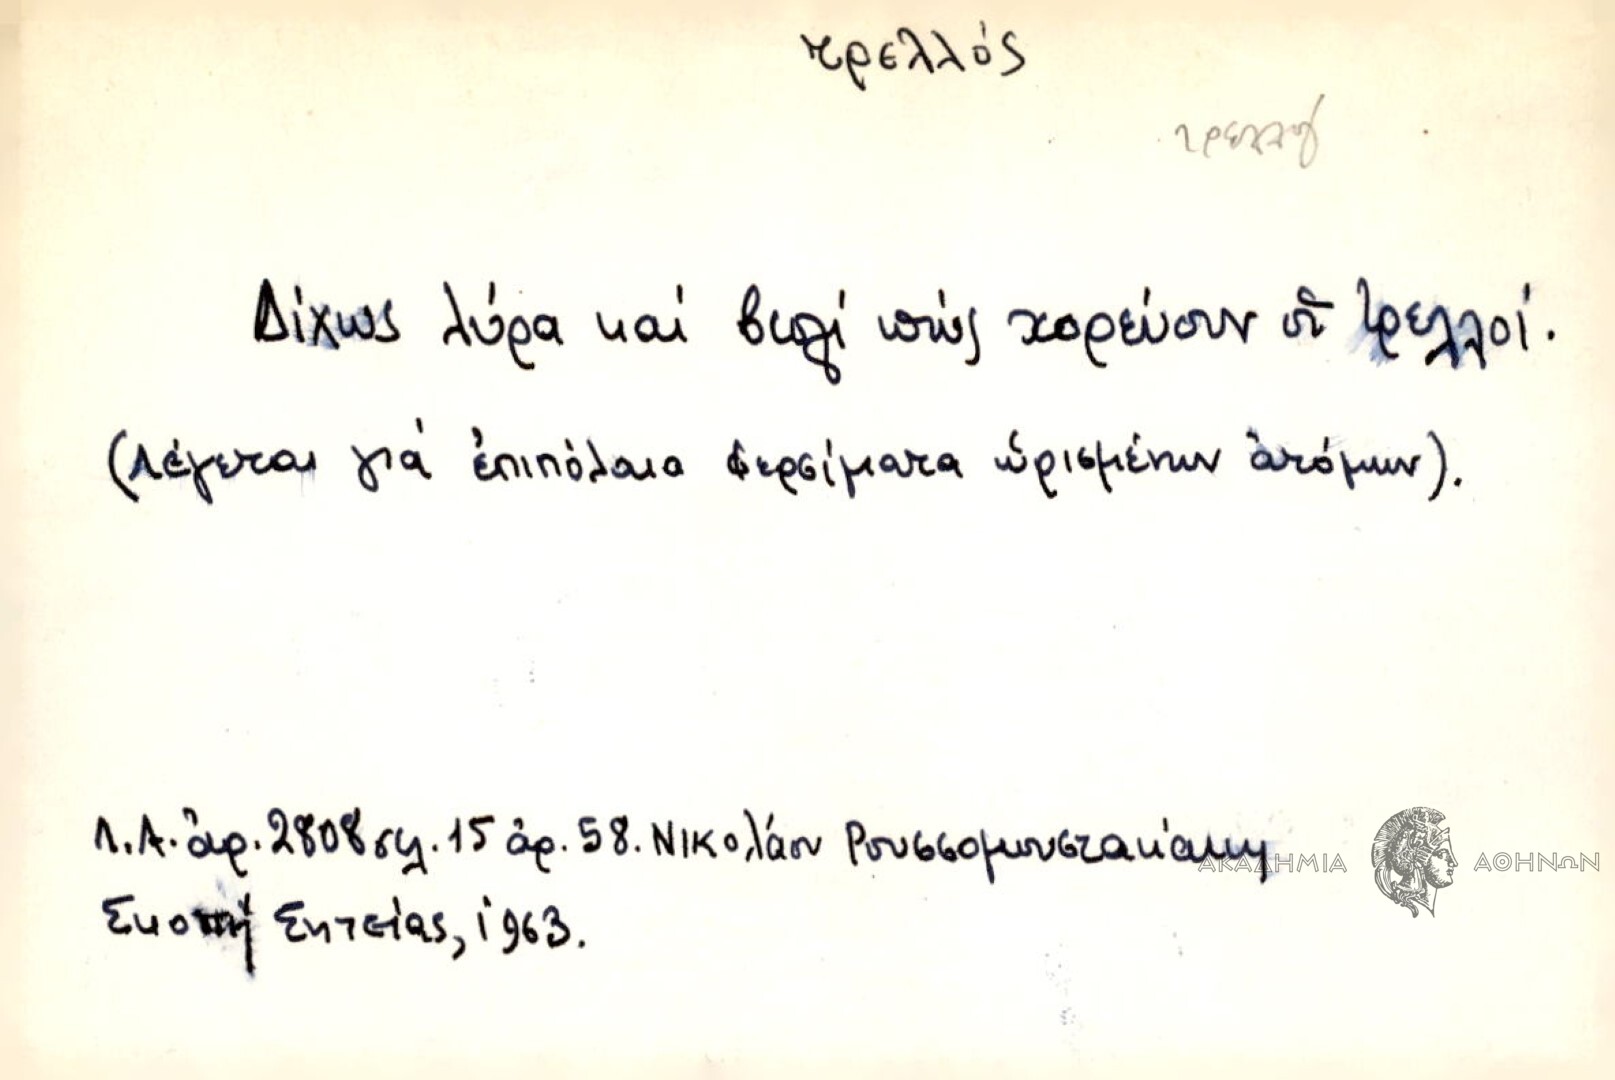 τρελλός
τρελλός
Δίχως λύρα καί βιολί πώς χορεύουν οἱ τρελλοί.
(Λέγεται γιά ἐπιπόλαια φερσίματα ὡρισμένων ἀτόμων).
Λ.Α. ἀρ. 2808 σελ. 15 ἀρ. 58. Νικολάου Ρουσσομουστακάκη
ΑΚΑΔΗΜΙΑ ΑΘΗΝΩΝ
Σκοπή Σητείας, 1963.